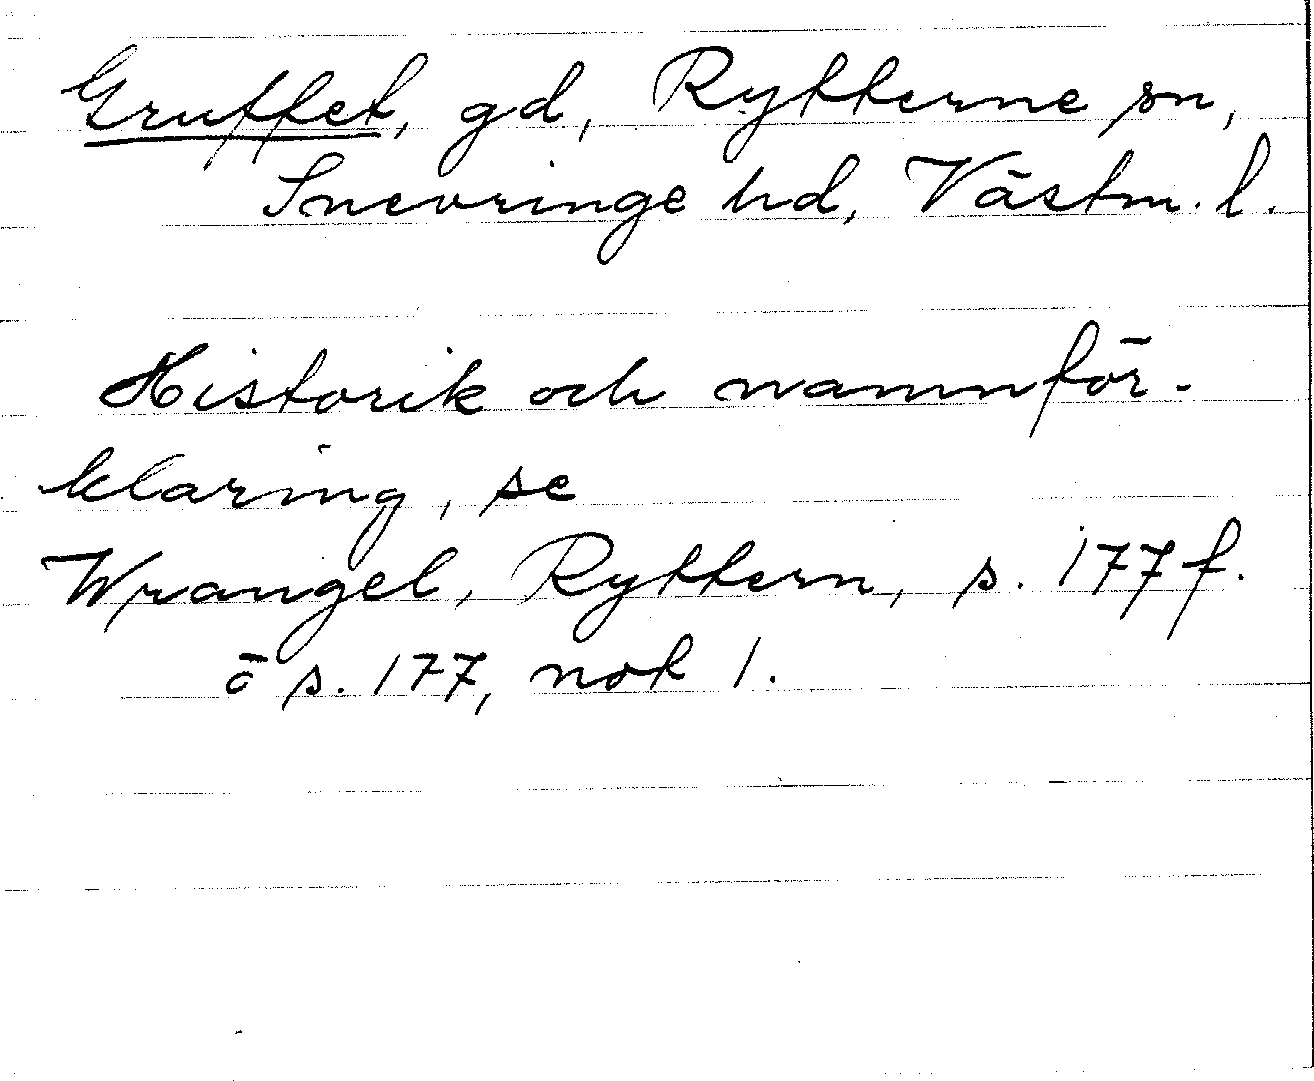 Gruffet, gd, Rytterne sn,
Snevringe hd, Västm. l.
Historik och namnför-
klaring, se
Wrangel, Ryttern, s. 177 f.
o s. 177, not 1.